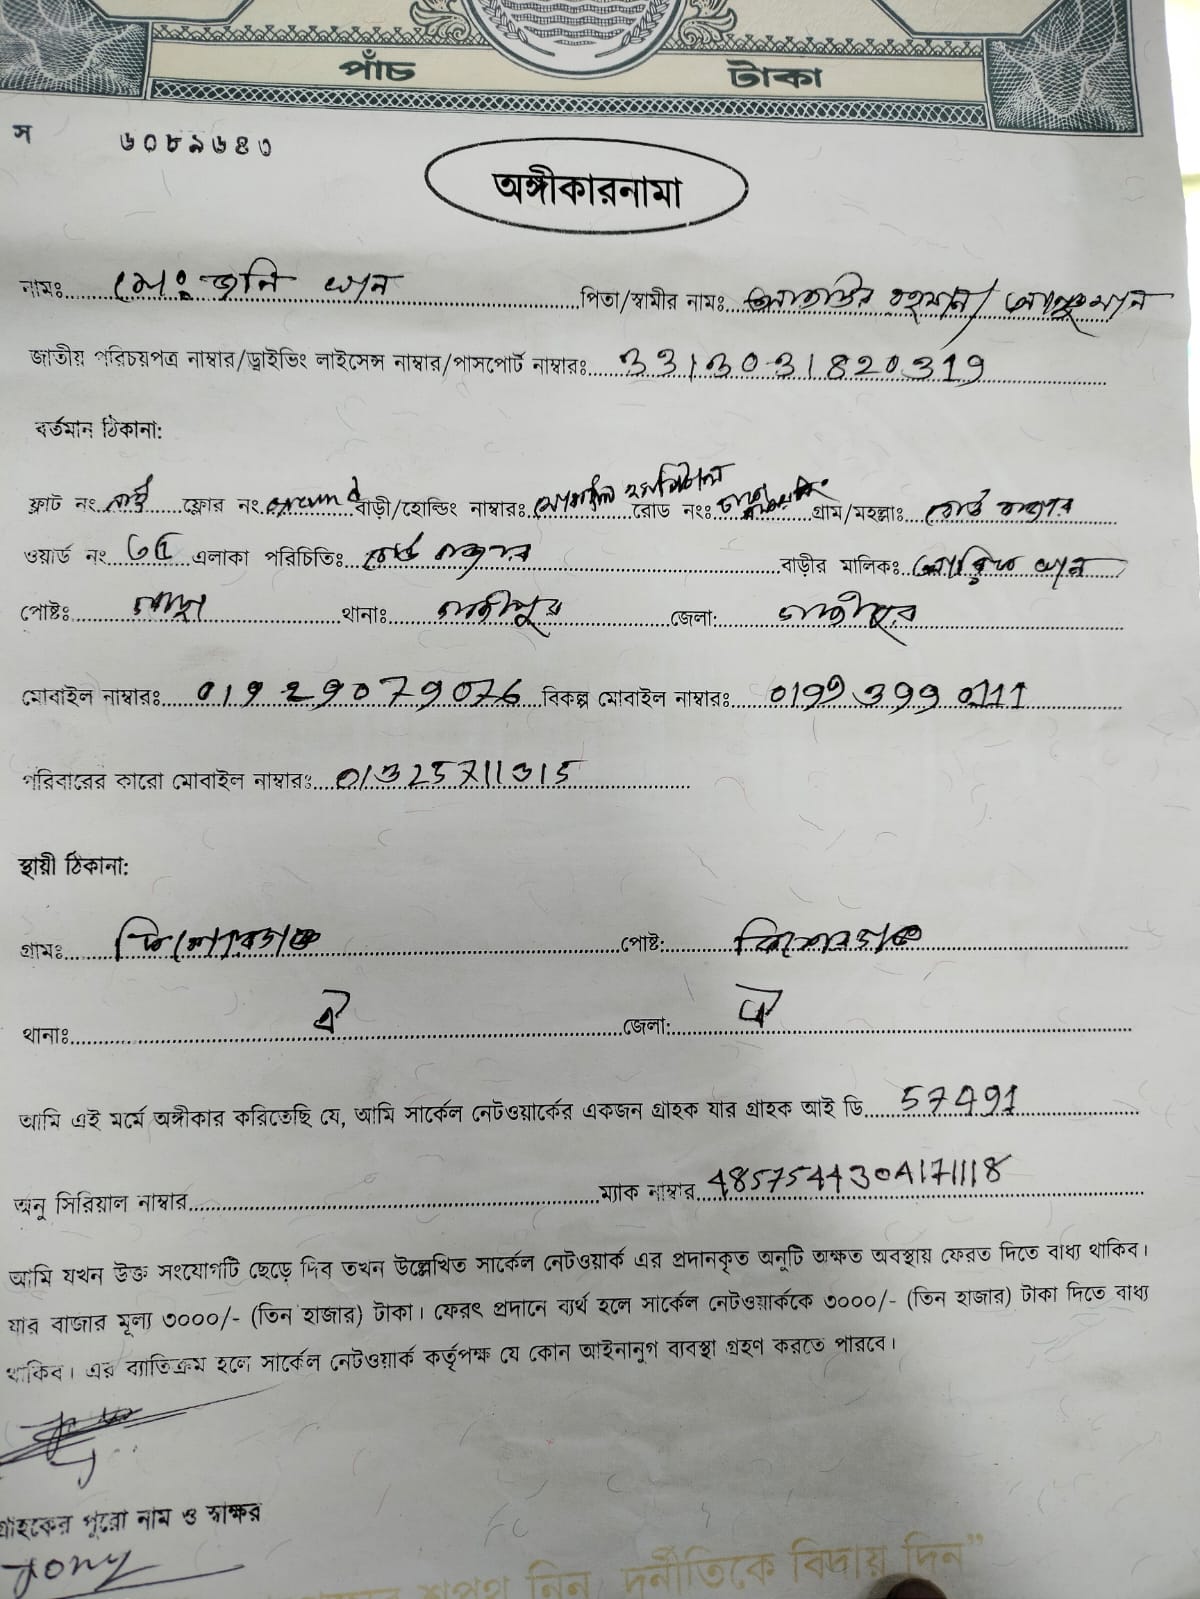 পাঁচ টাকা
স ৬০৮৯৬৪৩
অঙ্গীকারনামা
নামঃ মোঃ জনি খান পিতা/স্বামীর নামঃ রহমান/
জাতীয় পরিচয়পত্র নাম্বার/ড্রাইভিং লাইসেন্স নাম্বার/পাসপোর্ট নাম্বারঃ 3313031820319
বর্তমান ঠিকানা:
ফ্লাট নং নাই ফ্লোর নং বাড়ী/হোল্ডিং নাম্বারঃ রোড নংঃ গ্রাম/মহল্লাঃ বোর্ড বাজার
ওয়ার্ড নং ৩৫ এলাকা পরিচিতিঃ বোর্ড বাজার বাড়ীর মালিকঃ খান
পোষ্টঃ থানাঃ গাজীপুর জেলা: গাজীপুর
মোবাইল নাম্বারঃ 01929079076 বিকল্প মোবাইল নাম্বারঃ 01993990111
পরিবারের কারো মোবাইল নাম্বারঃ 01325711315
স্থায়ী ঠিকানা:
গ্রামঃ কিশোরগঞ্জ পোষ্ট: কিশোরগঞ্জ
থানাঃ ঐ জেলা: ঐ
আমি এই মর্মে অঙ্গীকার করিতেছি যে, আমি সার্কেল নেটওয়ার্কের একজন গ্রাহক যার গ্রাহক আই ডি 57491
অনু সিরিয়াল নাম্বার ম্যাক নাম্বার 485754430A171118
আমি যখন উক্ত সংযোগটি ছেড়ে দিব তখন উল্লেখিত সার্কেল নেটওয়ার্ক এর প্রদানকৃত অনুটি অক্ষত অবস্থায় ফেরত দিতে বাধ্য থাকিব।
যার বাজার মূল্য ৩০০০/- (তিন হাজার) টাকা। ফেরৎ প্রদানে ব্যর্থ হলে সার্কেল নেটওয়ার্ককে ৩০০০/- (তিন হাজার) টাকা দিতে বাধ্য
থাকিব। এর ব্যাতিক্রম হলে সার্কেল নেটওয়ার্ক কর্তৃপক্ষ যে কোন আইনানুগ ব্যবস্থা গ্রহণ করতে পারবে।
গ্রাহকের পুরো নাম ও স্বাক্ষর
Jony
শপথ নিন, দুর্নীতিকে বিদায় দিন”